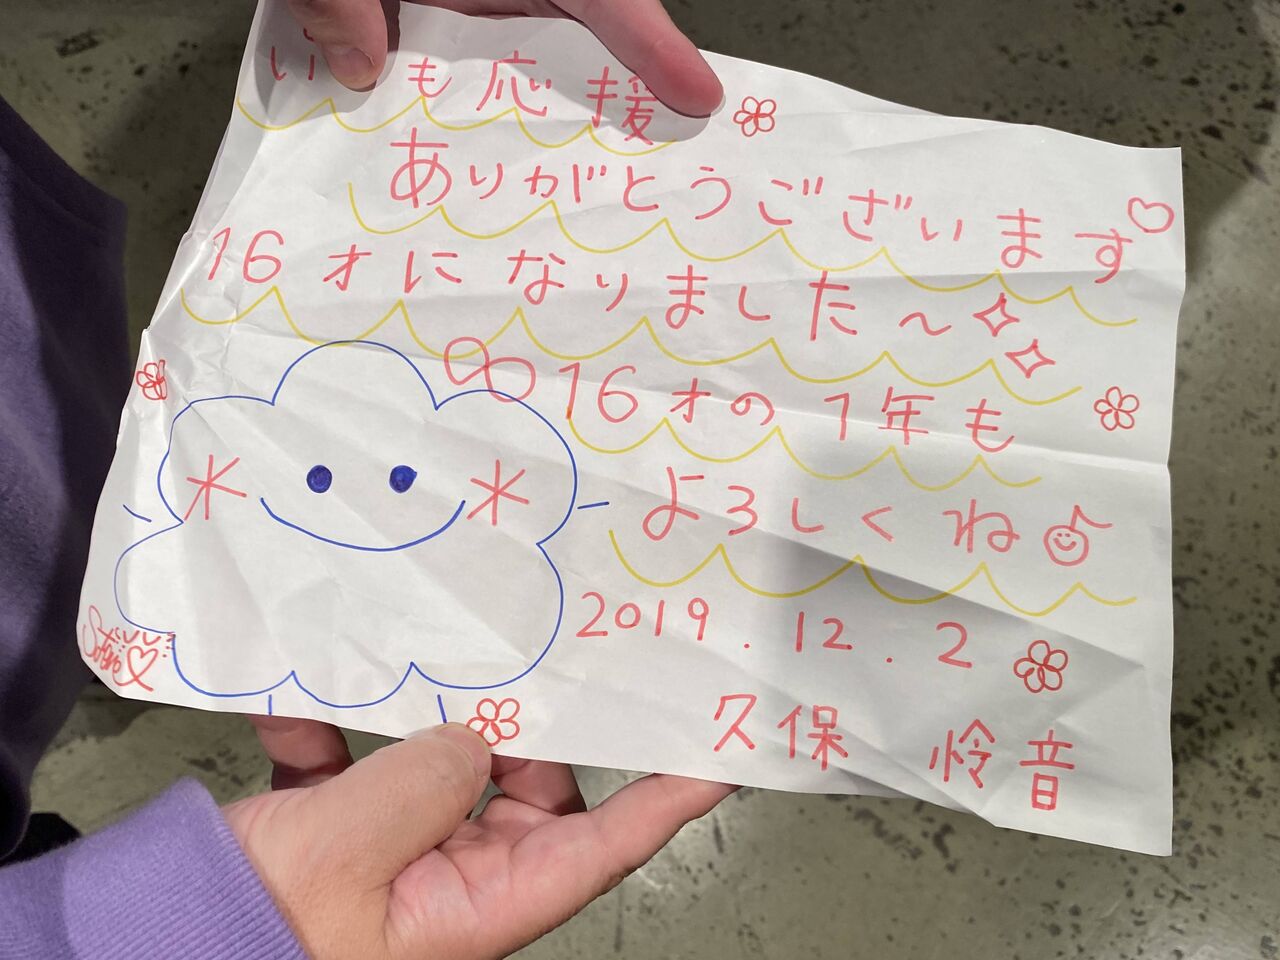 い も応援
ありがとうございます♡
16才になりました〜
16才の1年も
よろしくね♪
2019.12.2
久保 怜音